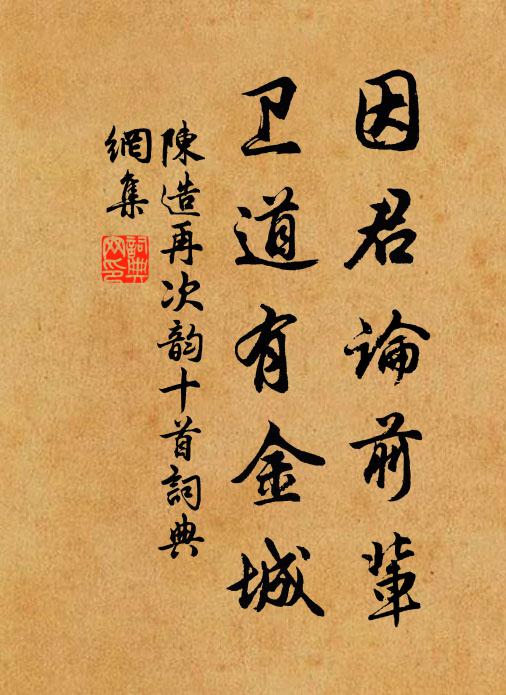 因君論前輩
卫道有金城
陳造再次韵十首詞典
網集
詞典
网印